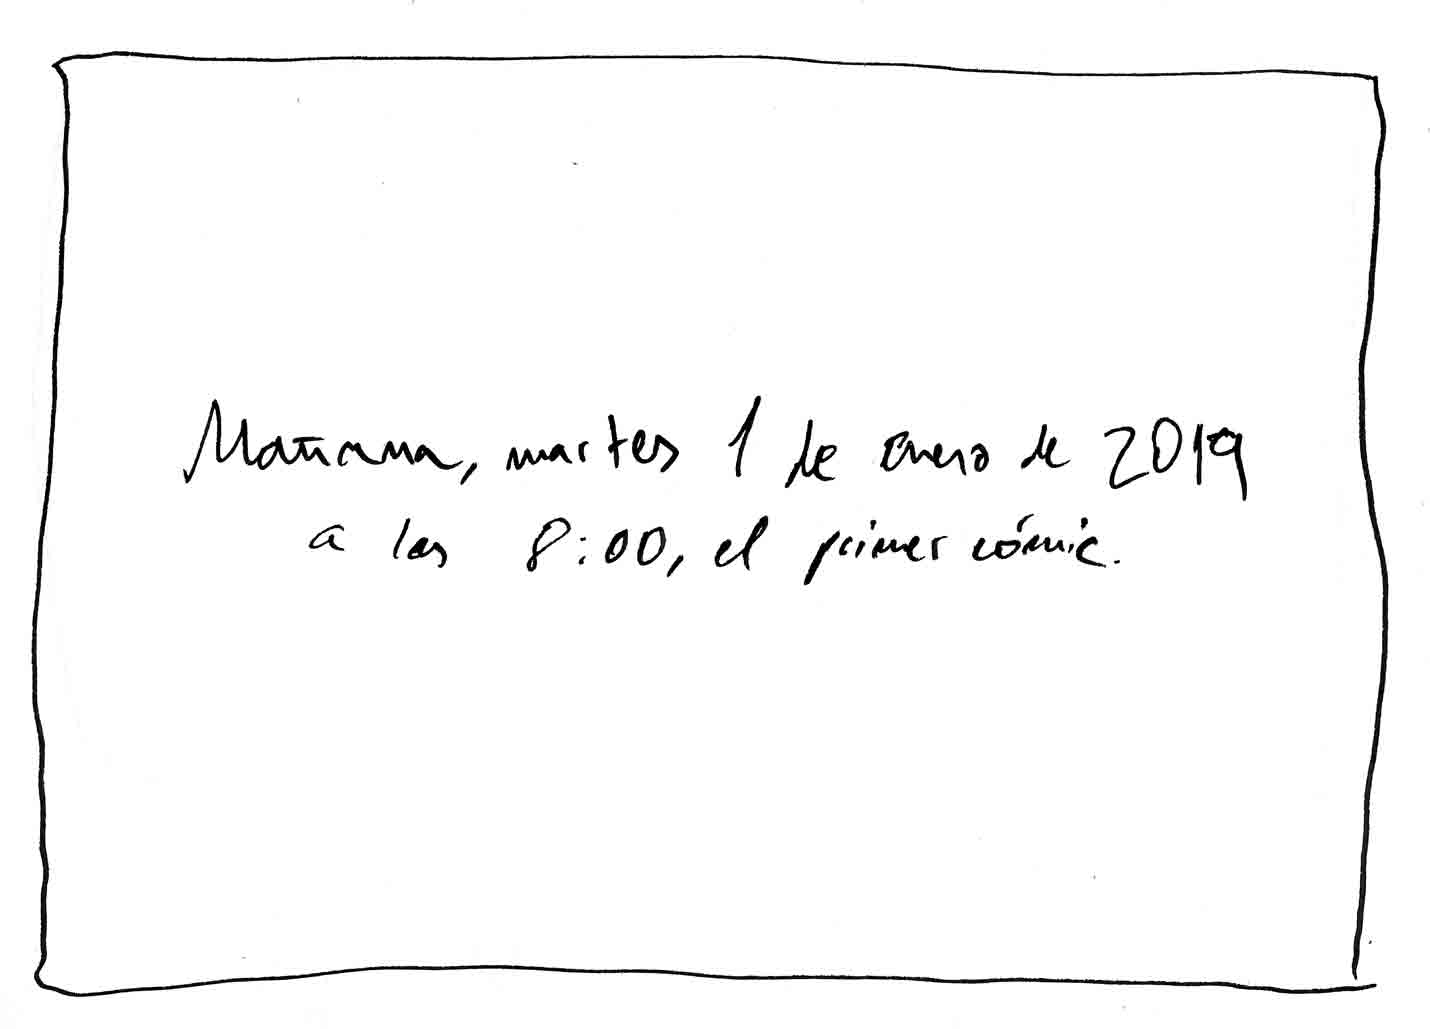 Mañana, martes 1 de enero de 2019
a las 8:00, el primer cómic.